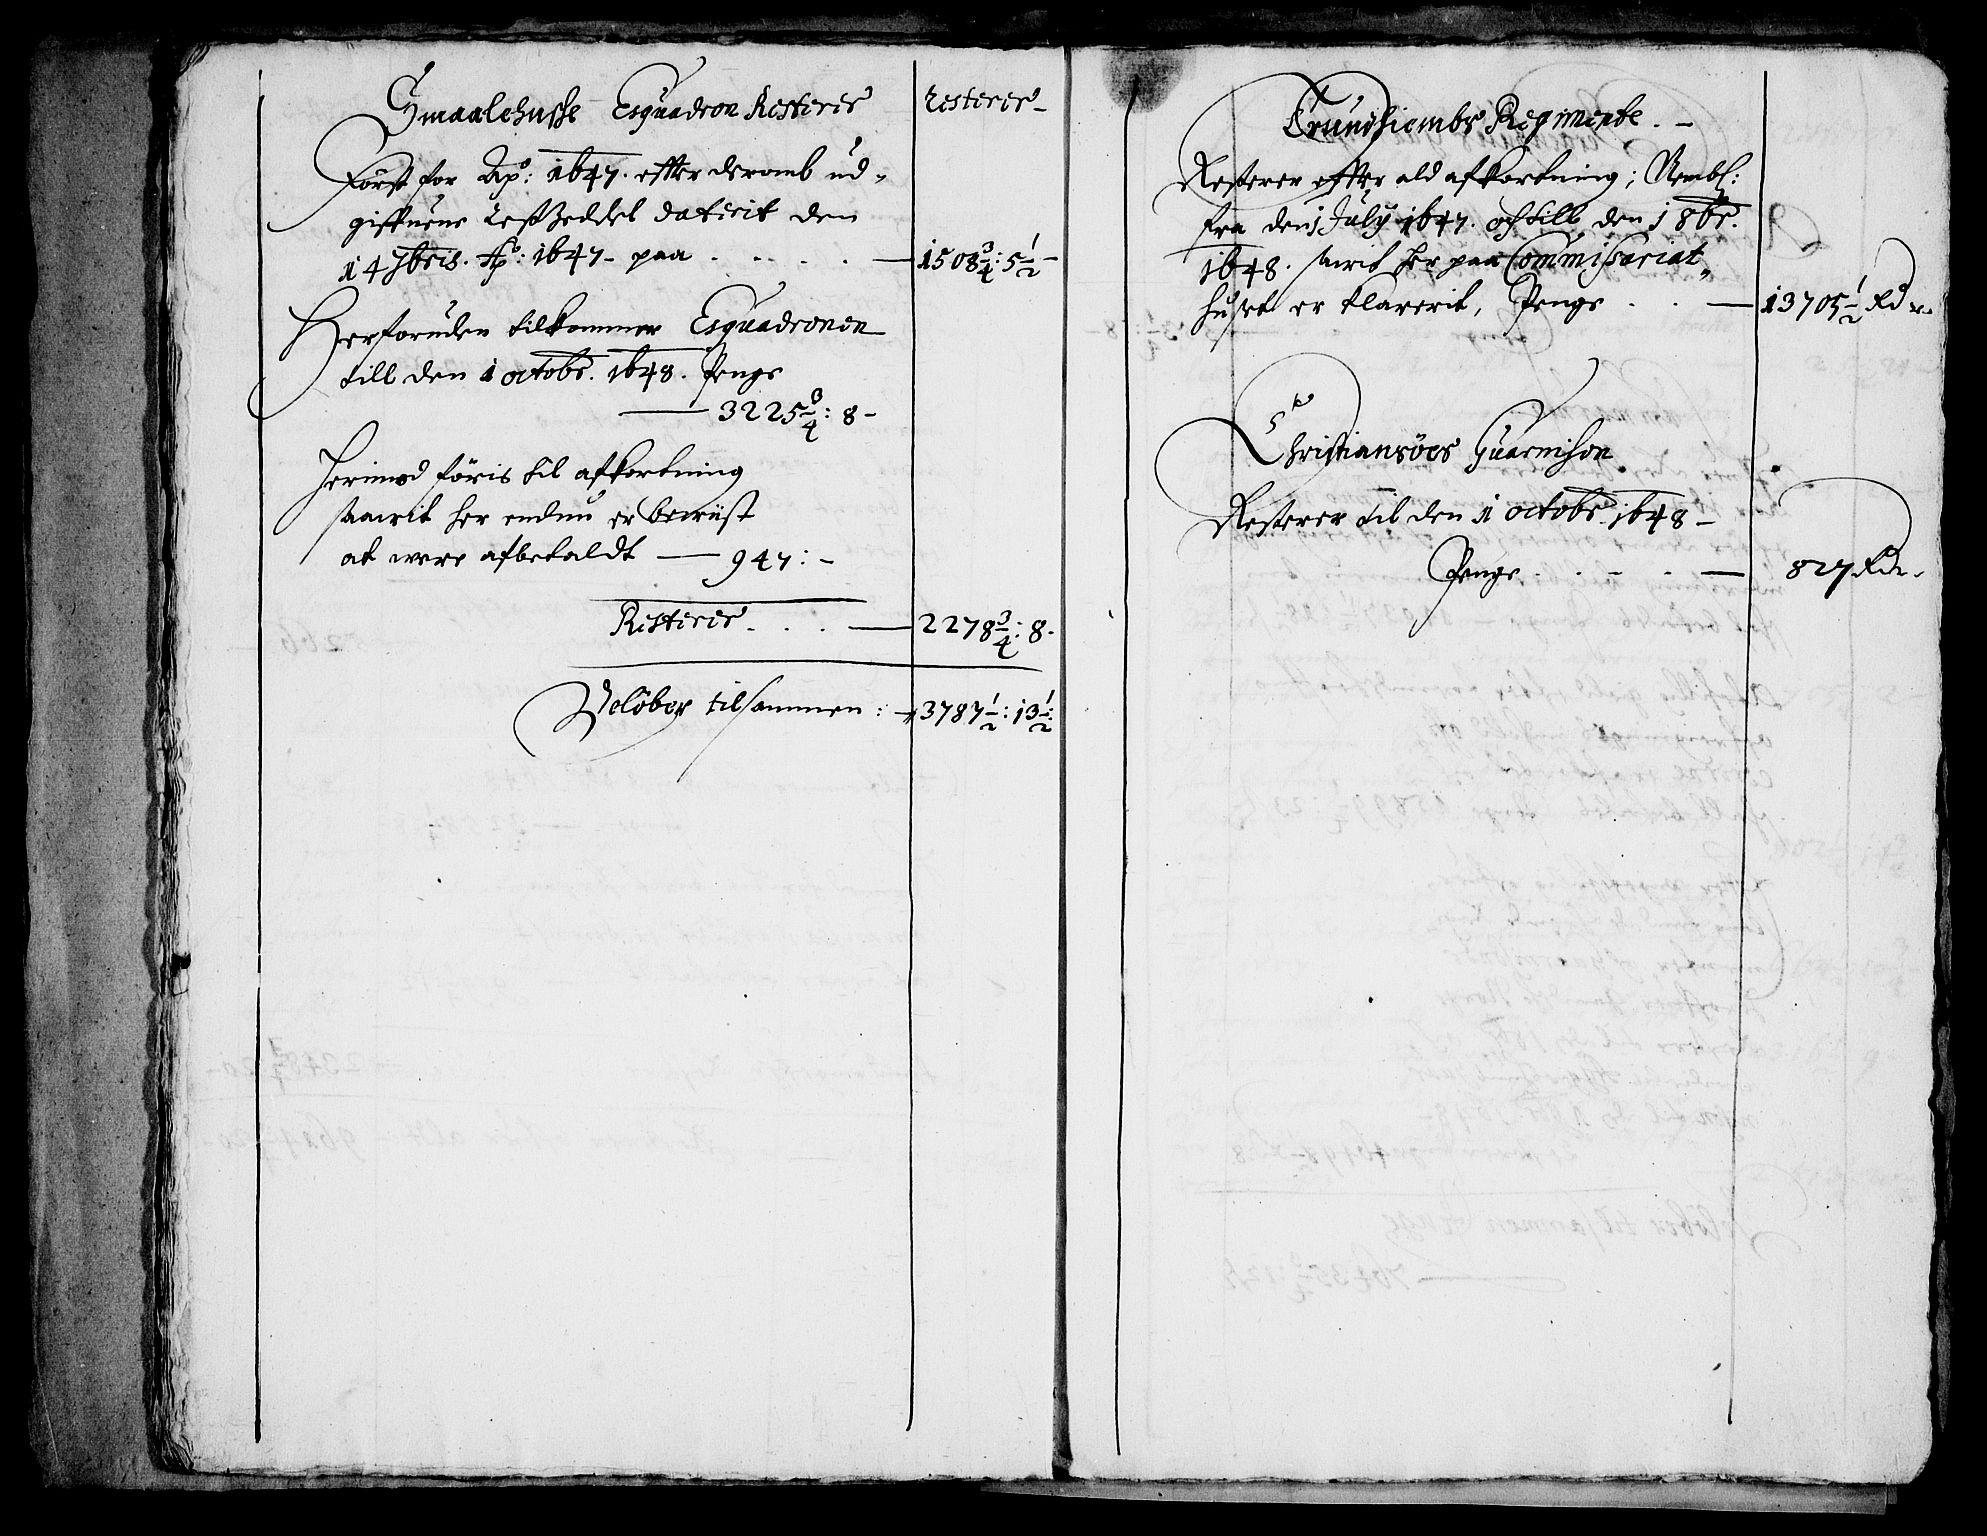 Smaalehnsche Esquadron Resterer
Resterer
Först for Ao: 1647. efter deromb ud-
giffuene RestZeddel daterit den
14 7bris. Ao: 1647 - paa . . . . . — 1508 3/4: 5 1/2 -
Herforuden tilkommer Esquadronen
till den 1 octobr. 1648. Penge
— 3225 3/4: 8 -
Herimod föris til afkortning
saawit her endnu er bewiist
at were afbetaldt — 947: -
Resterer . . . — 2278 3/4: 8 -
Belöber tilsammen: — 3787 1/2: 13 1/2:
Trundhiembs Regimente. -
Resterer effter ald afkortning; Nembl:
fra den 1 July 1647. och till den 1 8br.
1648. saawit her paa Commissariat-
huset er klarerit, Penge . . — 13705 1/2 Rdr.
Christiansöes Guarnison
Resterer til den 1 octobr. 1648 -
Penge . . - . — 827 Rdr.